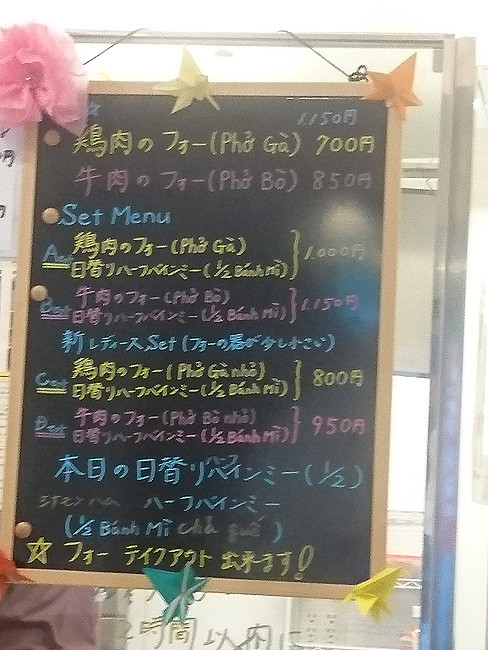 1.150円
鶏肉のフォー(Phở Gà) 700円
牛肉のフォー(Phở Bò) 850円
Set Menu
A set 鶏肉のフォー(Phở Gà)
日替りハーフバインミー(½ Bánh Mì) 1.000円
B set 牛肉のフォー(Phở Bò)
日替りハーフバインミー(½ Bánh Mì) 1.150円
新レディースSet (フォーの器が少し小さい)
C set 鶏肉のフォー(Phở Gà nhỏ)
日替りハーフバインミー(½ Bánh Mì) 800円
牛肉のフォー(Phở Bò nhỏ)
日替りハーフバインミー(½ Bánh Mì) 950円
本日の日替りハーフバインミー(½)
シナモンハム ハーフバインミー
(½ Bánh Mì chả quế)
☆ フォー テイクアウト 出来ます!
2時間以内に